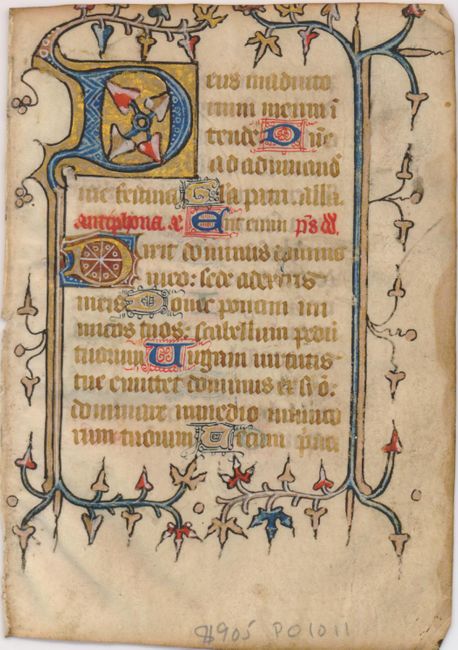 Deus in adiuto
rium meum i
tende Dñe
ad adiuuand
me festina Gła patri. Alla.
Antiphona. æ Et enim ps dd.
Dixit dominus domino
meo: sede a dextris
meis Donec ponam ini
micos tuos: scabellum pedū
tuorum Uirgam uirtutis
tue emittet dominus ex siō:
dominare in medio inimico
rum tuorum Tecum prin
8905 PO1011